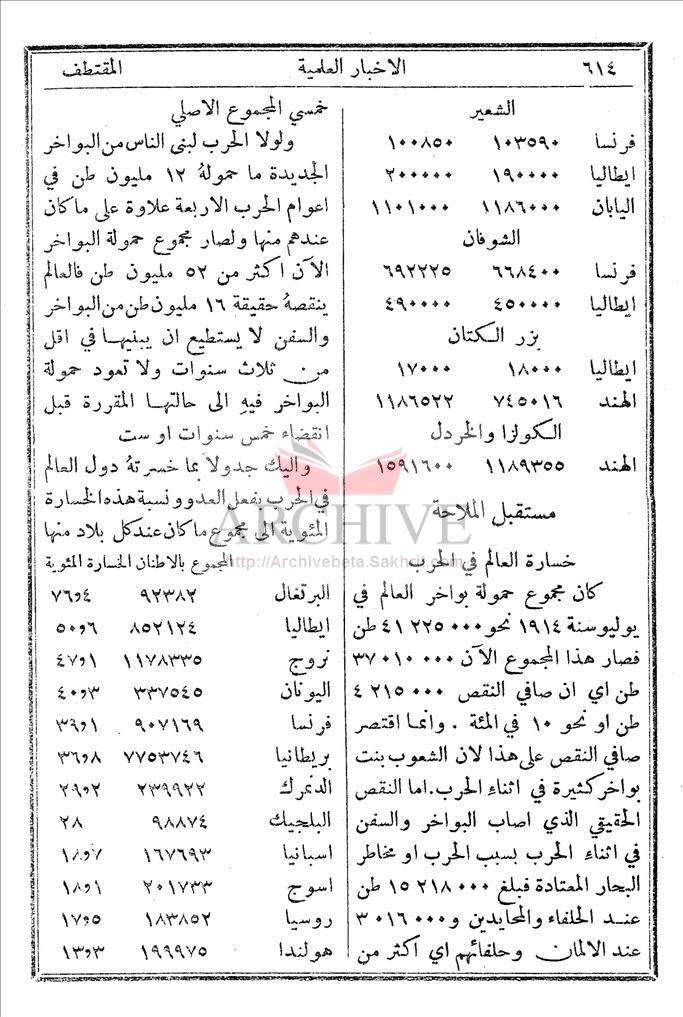 ٦١٤ الاخبار العلمية المقتطف
الشعير
فرنسا ١٠٣٥٩٠ ١٠٠٨٥٠
ايطاليا ١٩٠٠٠٠ ٢٠٠٠٠٠
اليابان ١١٨٦٠٠٠ ١١٠١٠٠٠
الشوفان
فرنسا ٦٦٨٤٠٠ ٦٩٢٢٢٥
ايطاليا ٤٥٠٠٠٠ ٤٩٠٠٠٠
بزر الكتان
ايطاليا ١٨٠٠٠ ١٧٠٠٠
الهند ٧٤٥٠١٦ ١١٨٦٥٢٢
الكولزا والخردل
الهند ١١٨٩٣٥٥ ١٥٩١٦٠٠
مستقبل الملاحة
خسارة العالم في الحرب
كان مجموع حمولة بواخر العالم في
يوليو سنة ١٩١٤ نحو ٤١ ٢٢٥ ٠٠٠ طن
فصار هذا المجموع الآن ٣٧ ٠١٠ ٠٠٠
طن اي ان صافي النقص ٤ ٢١٥ ٠٠٠
طن او نحو ١٠ في المئة . وانما اقتصر
صافي النقص على هذا لان الشعوب بنت
بواخر كثيرة في اثناء الحرب. اما النقص
الحقيقي الذي اصاب البواخر والسفن
في اثناء الحرب بسبب الحرب او مخاطر
البحار المعتادة فبلغ ١٥ ٢١٨ ٠٠٠ طن
عند الحلفاء والمحايدين و ٣ ٠١٦ ٠٠٠
عند الالمان وحلفائهم اي اكثر من
خمسي المجموع الاصلي
ولولا الحرب لبنى الناس من البواخر
الجديدة ما حمولهُ ١٢ مليون طن في
اعوام الحرب الاربعة علاوة على ما كان
عندهم منها ولصار مجموع حمولة البواخر
الآن اكثر من ٥٢ مليون طن فالعالم
ينقصهُ حقيقة ١٦ مليون طن من البواخر
والسفن لا يستطيع ان يبنيها في اقل
من ثلاث سنوات ولا تعود حمولة
البواخر فيهِ الى حالتها المقررة قبل
انقضاء خمس سنوات او ست
واليك جدولا بما خسرتهُ دول العالم
في الحرب بفعل العدو ونسبة هذه الخسارة
المئوية الى مجموع ما كان عند كل بلاد منها
المجموع بالاطنان الخسارة المئوية
البرتغال ٩٢٣٨٢ ٧٦و٤
ايطاليا ٨٥٢١٢٤ ٥٠و٦
نروج ١١٧٨٣٣٥ ٤٧و١
اليونان ٣٣٧٥٤٥ ٤٠و٣
فرنسا ٩٠٧١٦٩ ٣٩و١
بريطانيا ٧٧٥٣٧٤٦ ٣٦و٨
الدنمرك ٢٣٩٩٢٢ ٢٩و٢
البلجيك ٩٨٨٧٤ ٢٨
اسبانيا ١٦٧٦٩٣ ١٨و٧
اسوج ٢٠١٧٣٣ ١٨و١
روسيا ١٨٣٨٥٢ ١٧و٥
هولندا ١٩٩٩٧٥ ١٣و٣
ARCHIVE
http://Archivebeta.Sakhrit.com